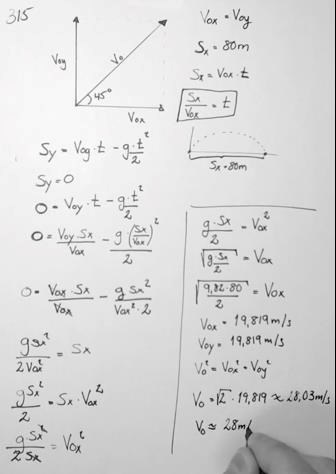 315
Voy
Vo
45°
Vox
Vox = Voy
Sx = 80m
Sx = Vox · t
Sx/Vox = t
Sx = 80m
Sy = Voy · t - g·t²/2
Sy = 0
0 = Voy · t - g·t²/2
0 = Voy Sx/Vox - g·(Sx/Vox)²/2
0 = Vox · Sx/Vox - g Sx²/Vox² · 2
g Sx²/2 Vox² = Sx
g Sx²/2 = Sx · Vox²
g Sx²/2 Sx = Vox²
g · Sx/2 = Vox²
√(g · Sx/2) = Vox
√(9,82 · 80/2) = Vox
Vox = 19,819 m/s
Voy = 19,819 m/s
Vo² = Vox² + Voy²
Vo = √2 · 19,819 ≈ 28,03 m/s
Vo ≈ 28 m/